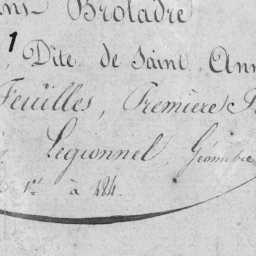 Broladre
1
Dite de Saint Ann
Feuilles, Premiere
Legionnel Géomètre
1er à 484.